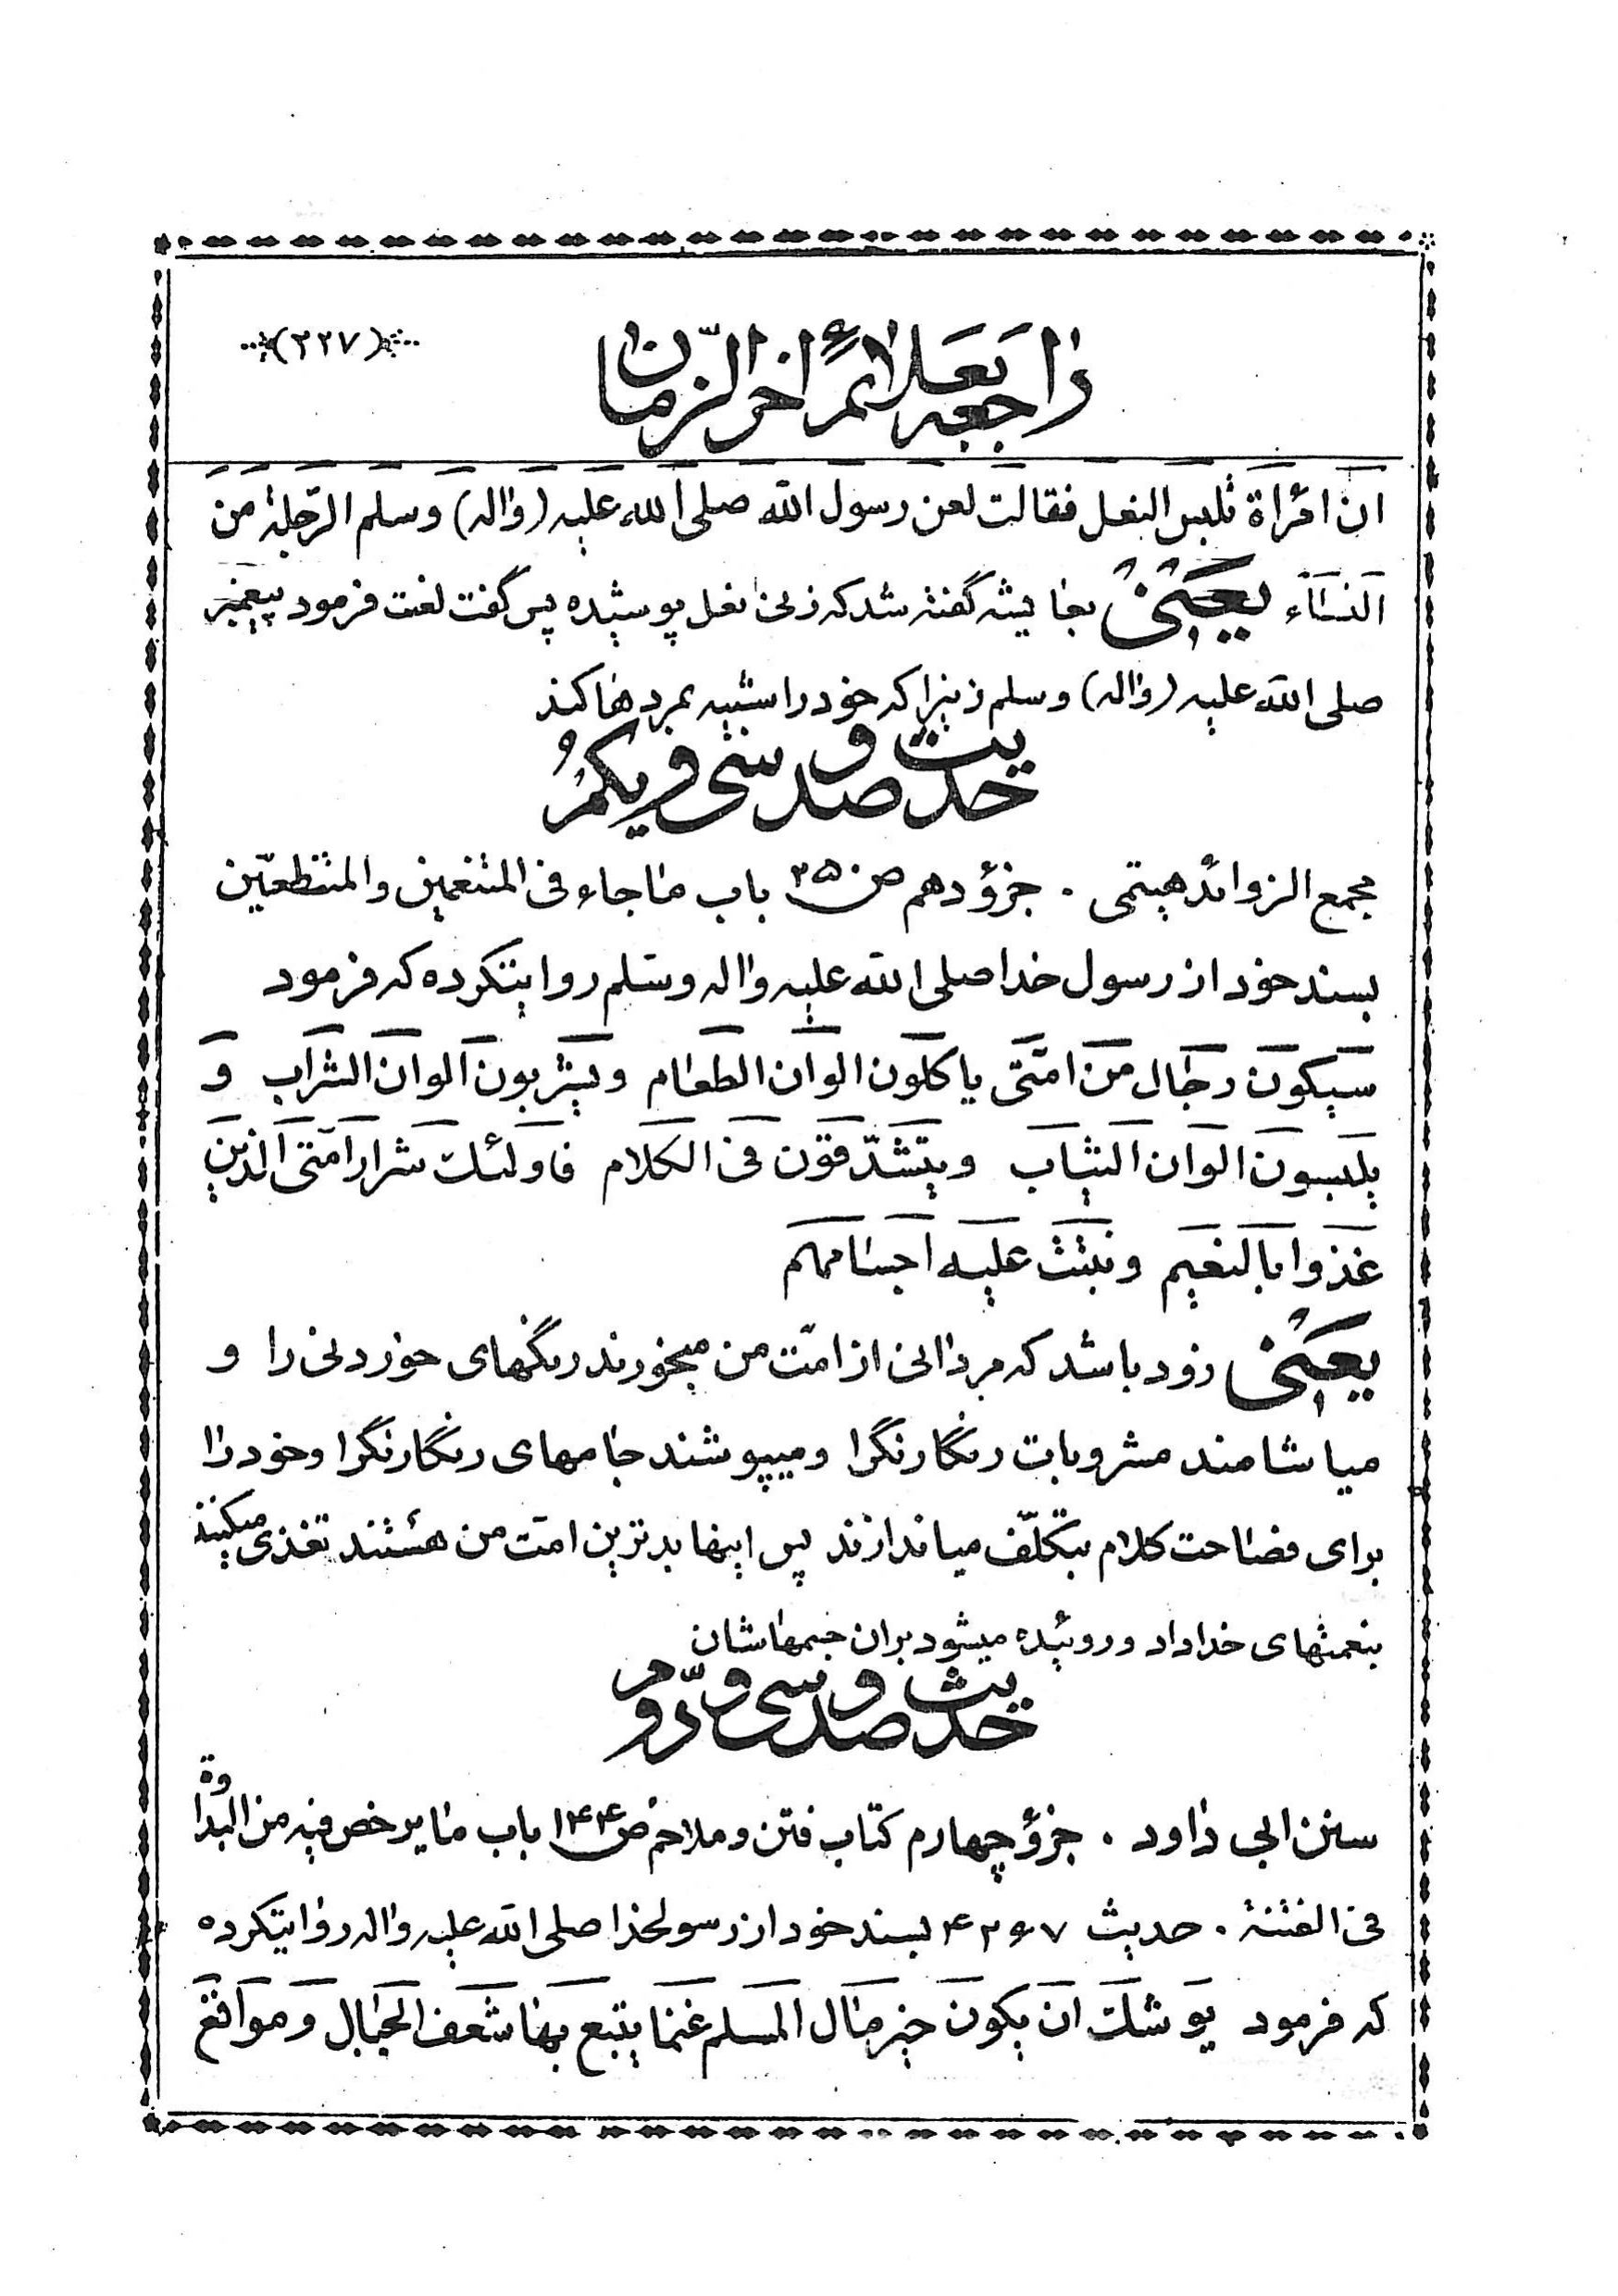 راجعه بعلائم اخر الزمان
(۲۲۷)
ان امرأة تلبس النعل فقالت لعن رسول الله صلى الله عليه (واله) وسلم الرّجلة من
النساء يعنى بعايشه گفته شد كه زنى نعل پوشيده پس گفت لعنت فرمود پيغمبر
صلى الله عليه (واله) وسلم زنيرا كه خود را شبيه بمردها كند
حديث صد و سى و يكم
مجمع الزوائد هيتمى . جزؤ دهم ص ۲۵۰ باب ما جاء فى المتنعمين والمتنطعين
بسند خود از رسول خدا صلى الله عليه واله وسلم روايتكرده كه فرمود
سيكون رجال من امّتى ياكلون الوان الطعام ويشربون الوان الشراب و
يلبسون الوان الثياب ويتشدّقون فى الكلام فاولئك شرار امّتى الذين
غذوا بالنعيم ونبتت عليه اجسامهم
يعنى زود باشد كه مردانى از امّت من ميخورند رنگهاى خوردنى را و
مياشامند مشروبات رنگارنگرا وميپوشند جامهاى رنگارنگرا وخود را
براى فصاحت كلام بتكلّف مياندازند پس اينها بدترين امّت من هستند تغذى ميكنند
بنعمتهاى خداداد و روئيده ميشود بران جسمهاشان
حديث صد و سى و دوّم
سنن ابى داود . جزؤ چهارم كتاب فتن و ملاحم ص ۱۴۴ باب ما يرخص فيه من البداوة
فى الفتنة . حديث ۴۲۶۷ بسند خود از رسولخدا صلى الله عليه واله روايتكرده
كه فرمود يوشك ان يكون خير مال المسلم غنما يتبع بها شعف الجبال ومواقع